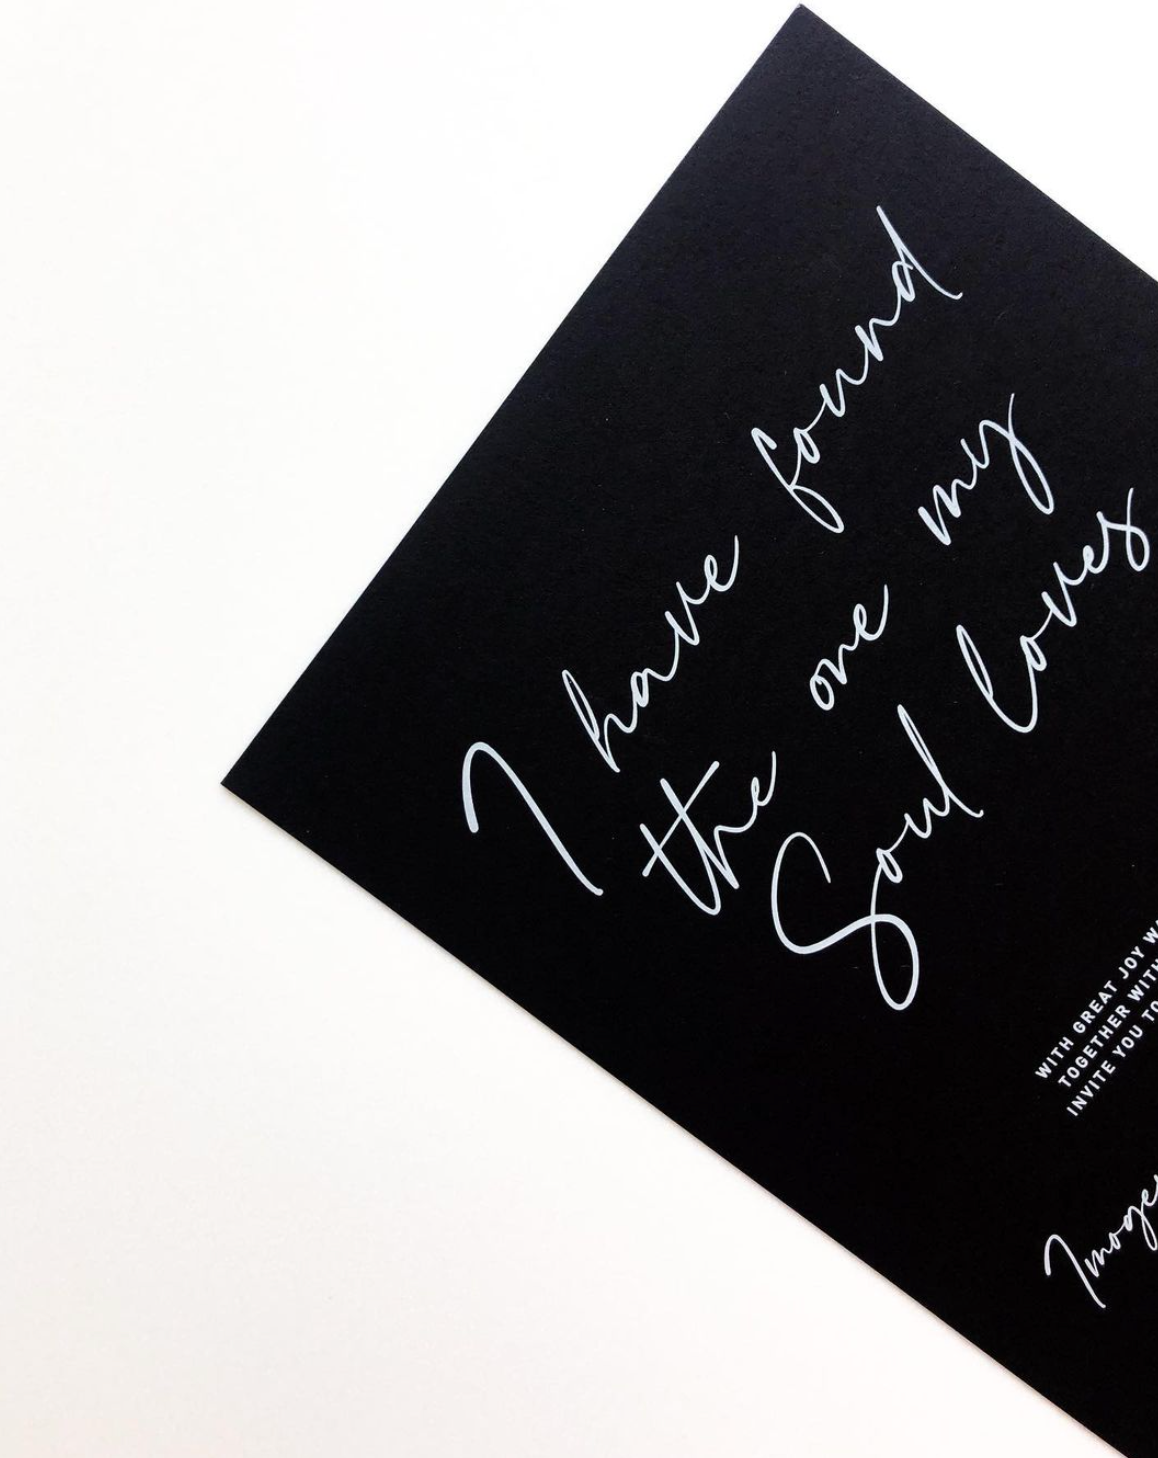 I have found
the one my
Soul loves
WITH GREAT JOY
TOGETHER WITH
INVITE YOU TO